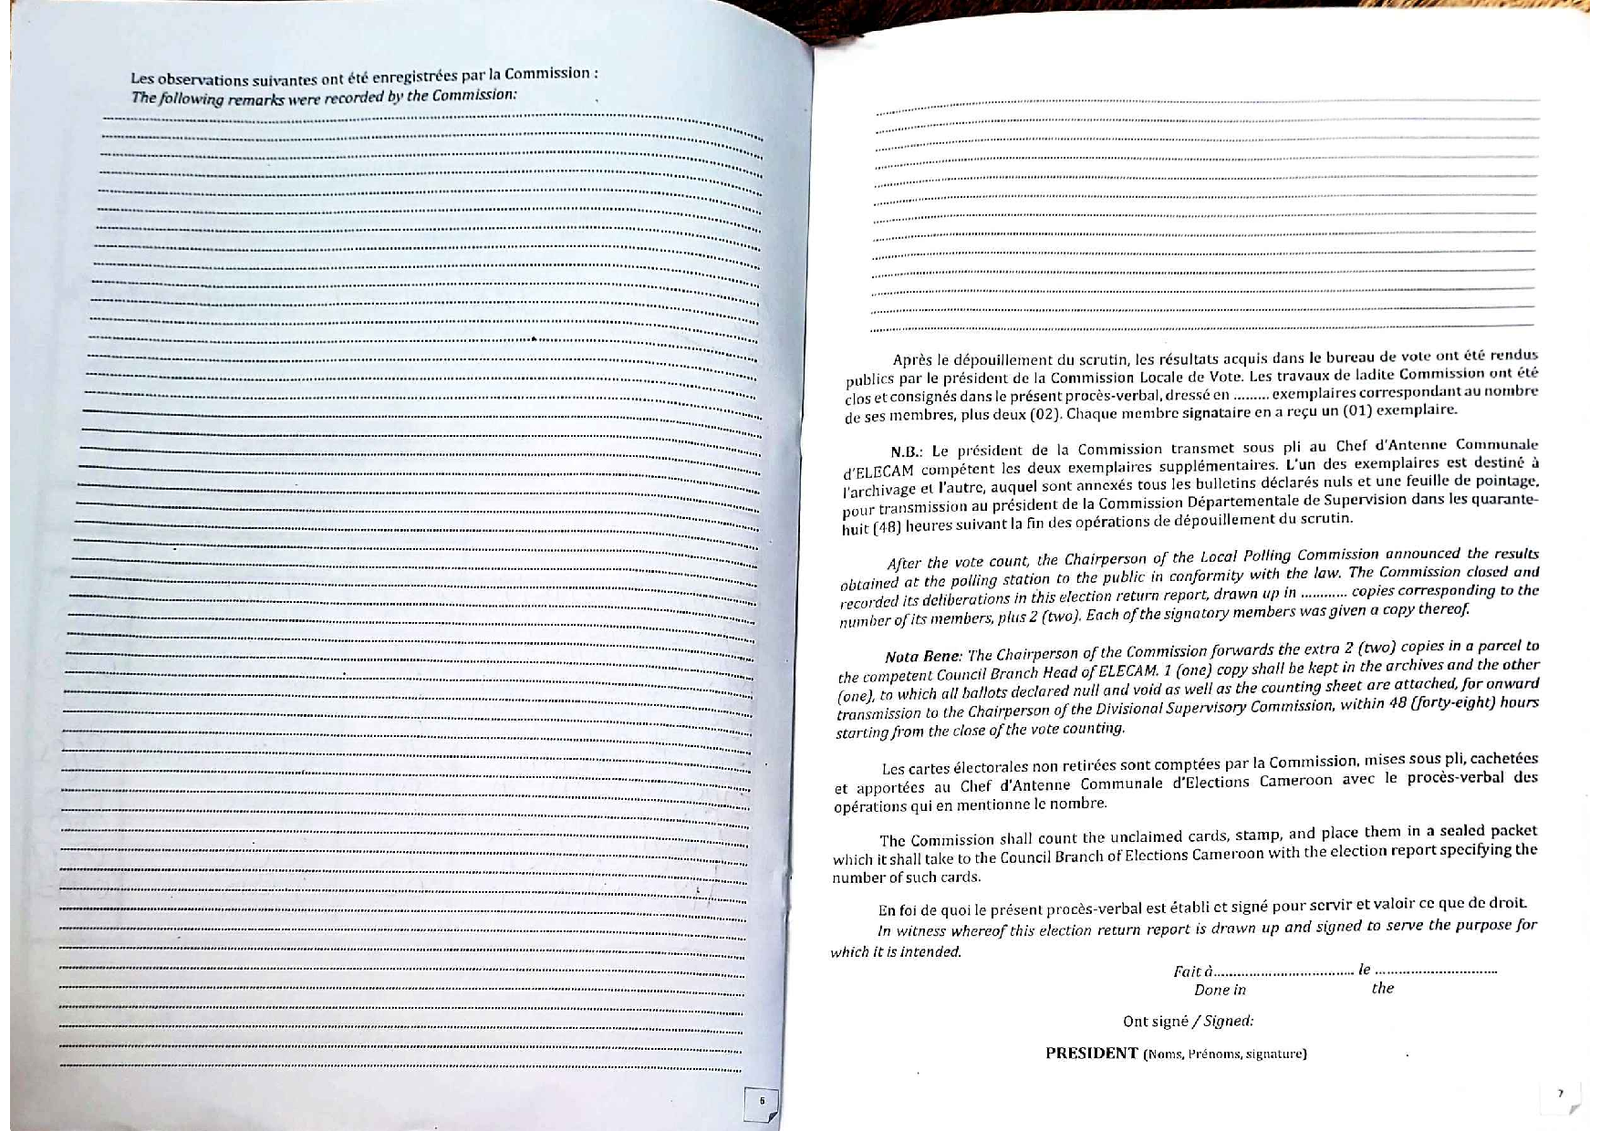 Les observations suivantes ont été enregistrées par la Commission :
The following remarks were recorded by the Commission:
6
Après le dépouillement du scrutin, les résultats acquis dans le bureau de vote ont été rendus
publics par le président de la Commission Locale de Vote. Les travaux de ladite Commission ont été
clos et consignés dans le présent procès-verbal, dressé en ......... exemplaires correspondant au nombre
de ses membres, plus deux (02). Chaque membre signataire en a reçu un (01) exemplaire.
N.B.: Le président de la Commission transmet sous pli au Chef d'Antenne Communale
d'ELECAM compétent les deux exemplaires supplémentaires. L'un des exemplaires est destiné à
l'archivage et l'autre, auquel sont annexés tous les bulletins déclarés nuls et une feuille de pointage,
pour transmission au président de la Commission Départementale de Supervision dans les quarante-
huit (48) heures suivant la fin des opérations de dépouillement du scrutin.
After the vote count, the Chairperson of the Local Polling Commission announced the results
obtained at the polling station to the public in conformity with the law. The Commission closed and
recorded its deliberations in this election return report, drawn up in ............ copies corresponding to the
number of its members, plus 2 (two). Each of the signatory members was given a copy thereof.
Nota Bene: The Chairperson of the Commission forwards the extra 2 (two) copies in a parcel to
the competent Council Branch Head of ELECAM. 1 (one) copy shall be kept in the archives and the other
(one), to which all ballots declared null and void as well as the counting sheet are attached, for onward
transmission to the Chairperson of the Divisional Supervisory Commission, within 48 (forty-eight) hours
starting from the close of the vote counting.
Les cartes électorales non retirées sont comptées par la Commission, mises sous pli, cachetées
et apportées au Chef d'Antenne Communale d'Elections Cameroon avec le procès-verbal des
opérations qui en mentionne le nombre.
The Commission shall count the unclaimed cards, stamp, and place them in a sealed packet
which it shall take to the Council Branch of Elections Cameroon with the election report specifying the
number of such cards.
En foi de quoi le présent procès-verbal est établi et signé pour servir et valoir ce que de droit.
In witness whereof this election return report is drawn up and signed to serve the purpose for
which it is intended.
Fait à.................................. le ..............................
Done in the
Ont signé / Signed:
PRESIDENT (Noms, Prénoms, signature)
7